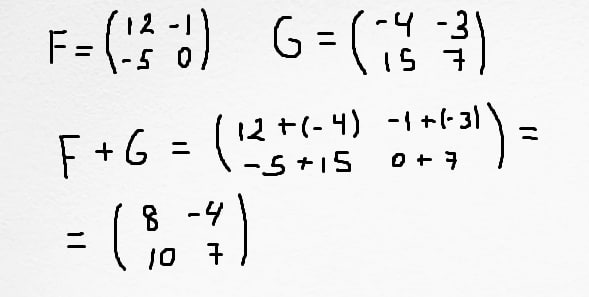 F = ( 12 -1 G = ( -4 -3
-5 0 ) 15 7 )
F + G = ( 12 + (-4) -1 + (-3)
-5 + 15 0 + 7 ) =
= ( 8 -4
10 7 )